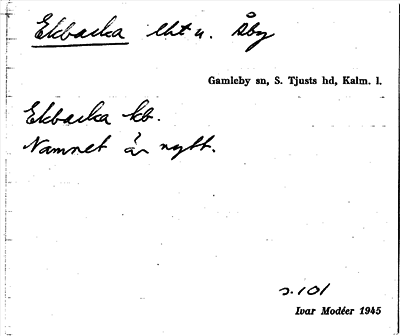 Ekbacka lht u. Åby
Gamleby sn, S. Tjusts hd, Kalm. l.
Ekbacka kb.
Namnet är nytt.
s. 101
Ivar Modéer 1945